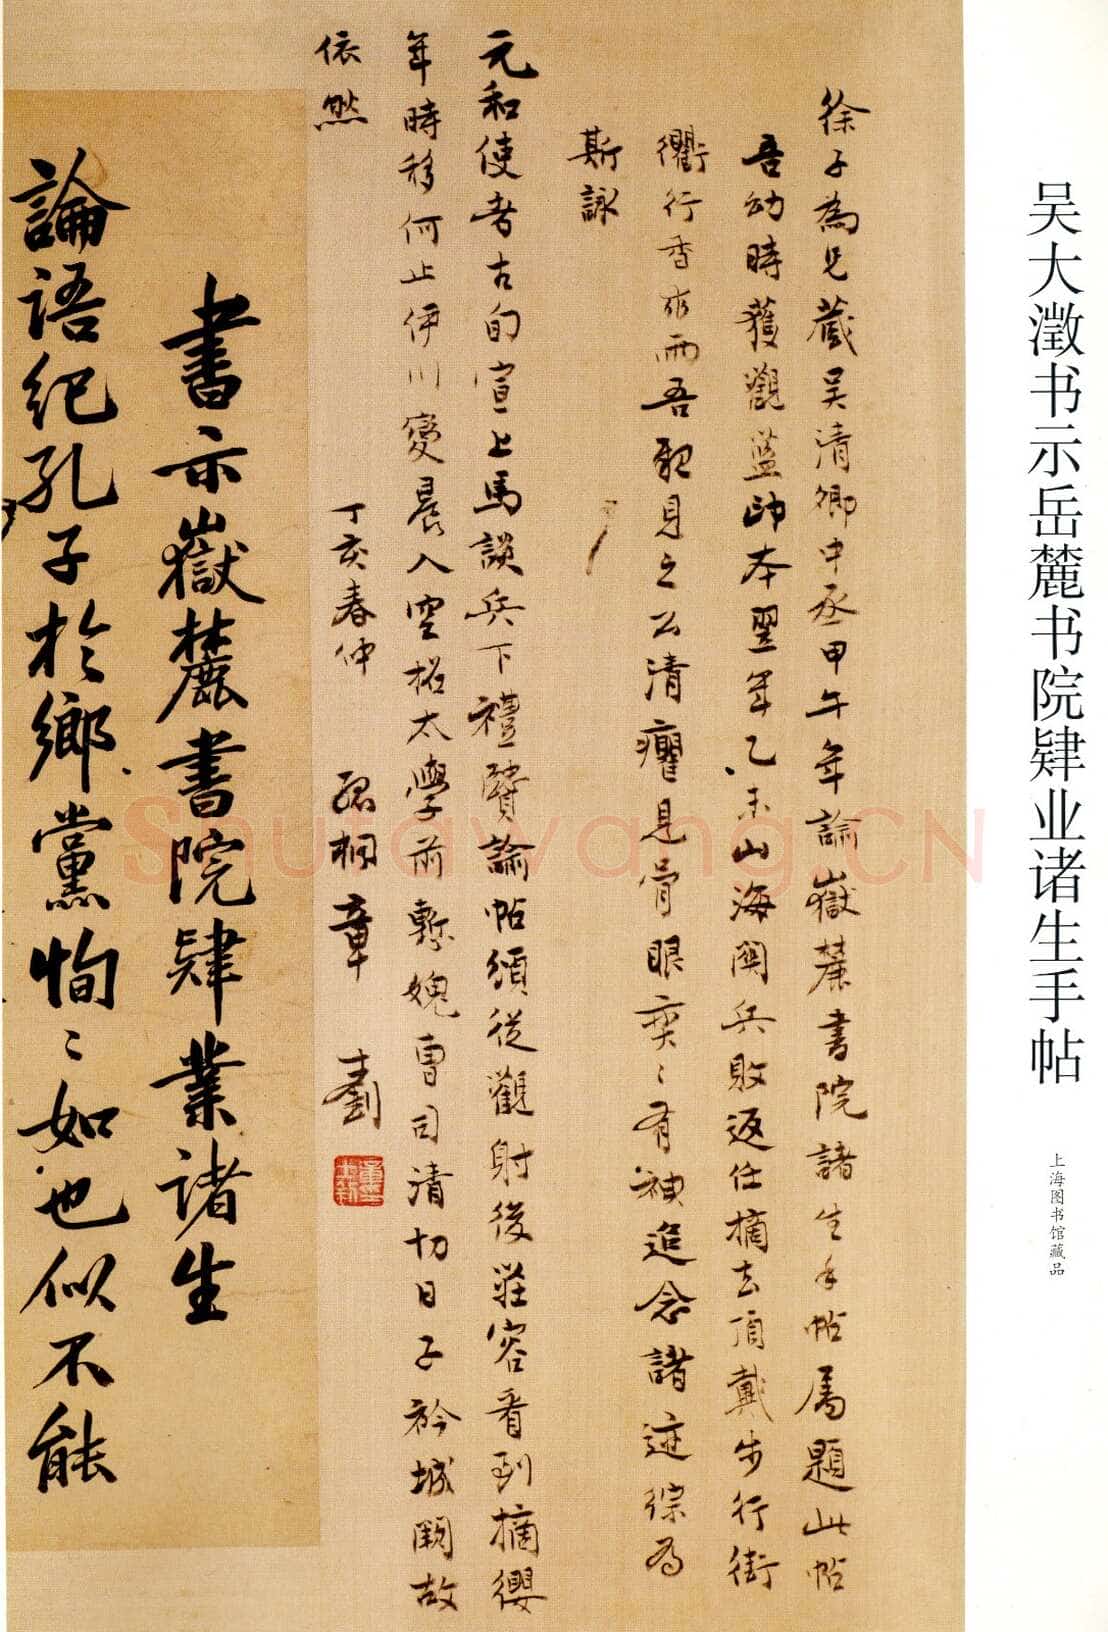 吴大澂书示岳麓书院肄业诸生手帖
上海图书馆藏品
徐子為兄藏吴清卿中丞甲午年諭嶽麓書院諸生手帖属題此帖
吾幼時獲觀藍本翌年乙未山海関兵敗返任摘去頂戴步行街
衢行香求雨吾親見之公清癯見骨眼奕〻有神追念諸迹綜為
斯詠
元和使者古旬宣上馬談兵下禮賢論帖頌從觀射後莊容看到摘纓
年時移何止伊川變晨入空格太學前慙媿曹司清切日子衿城闕故
依然
丁亥春仲 孤桐章 士釗
書示嶽麓書院肄業諸生
論語紀孔子於鄉黨恂〻如也似不能
Shufawang.CN